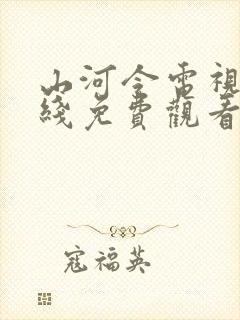 山河令電視
綫免費觀看
寇福英